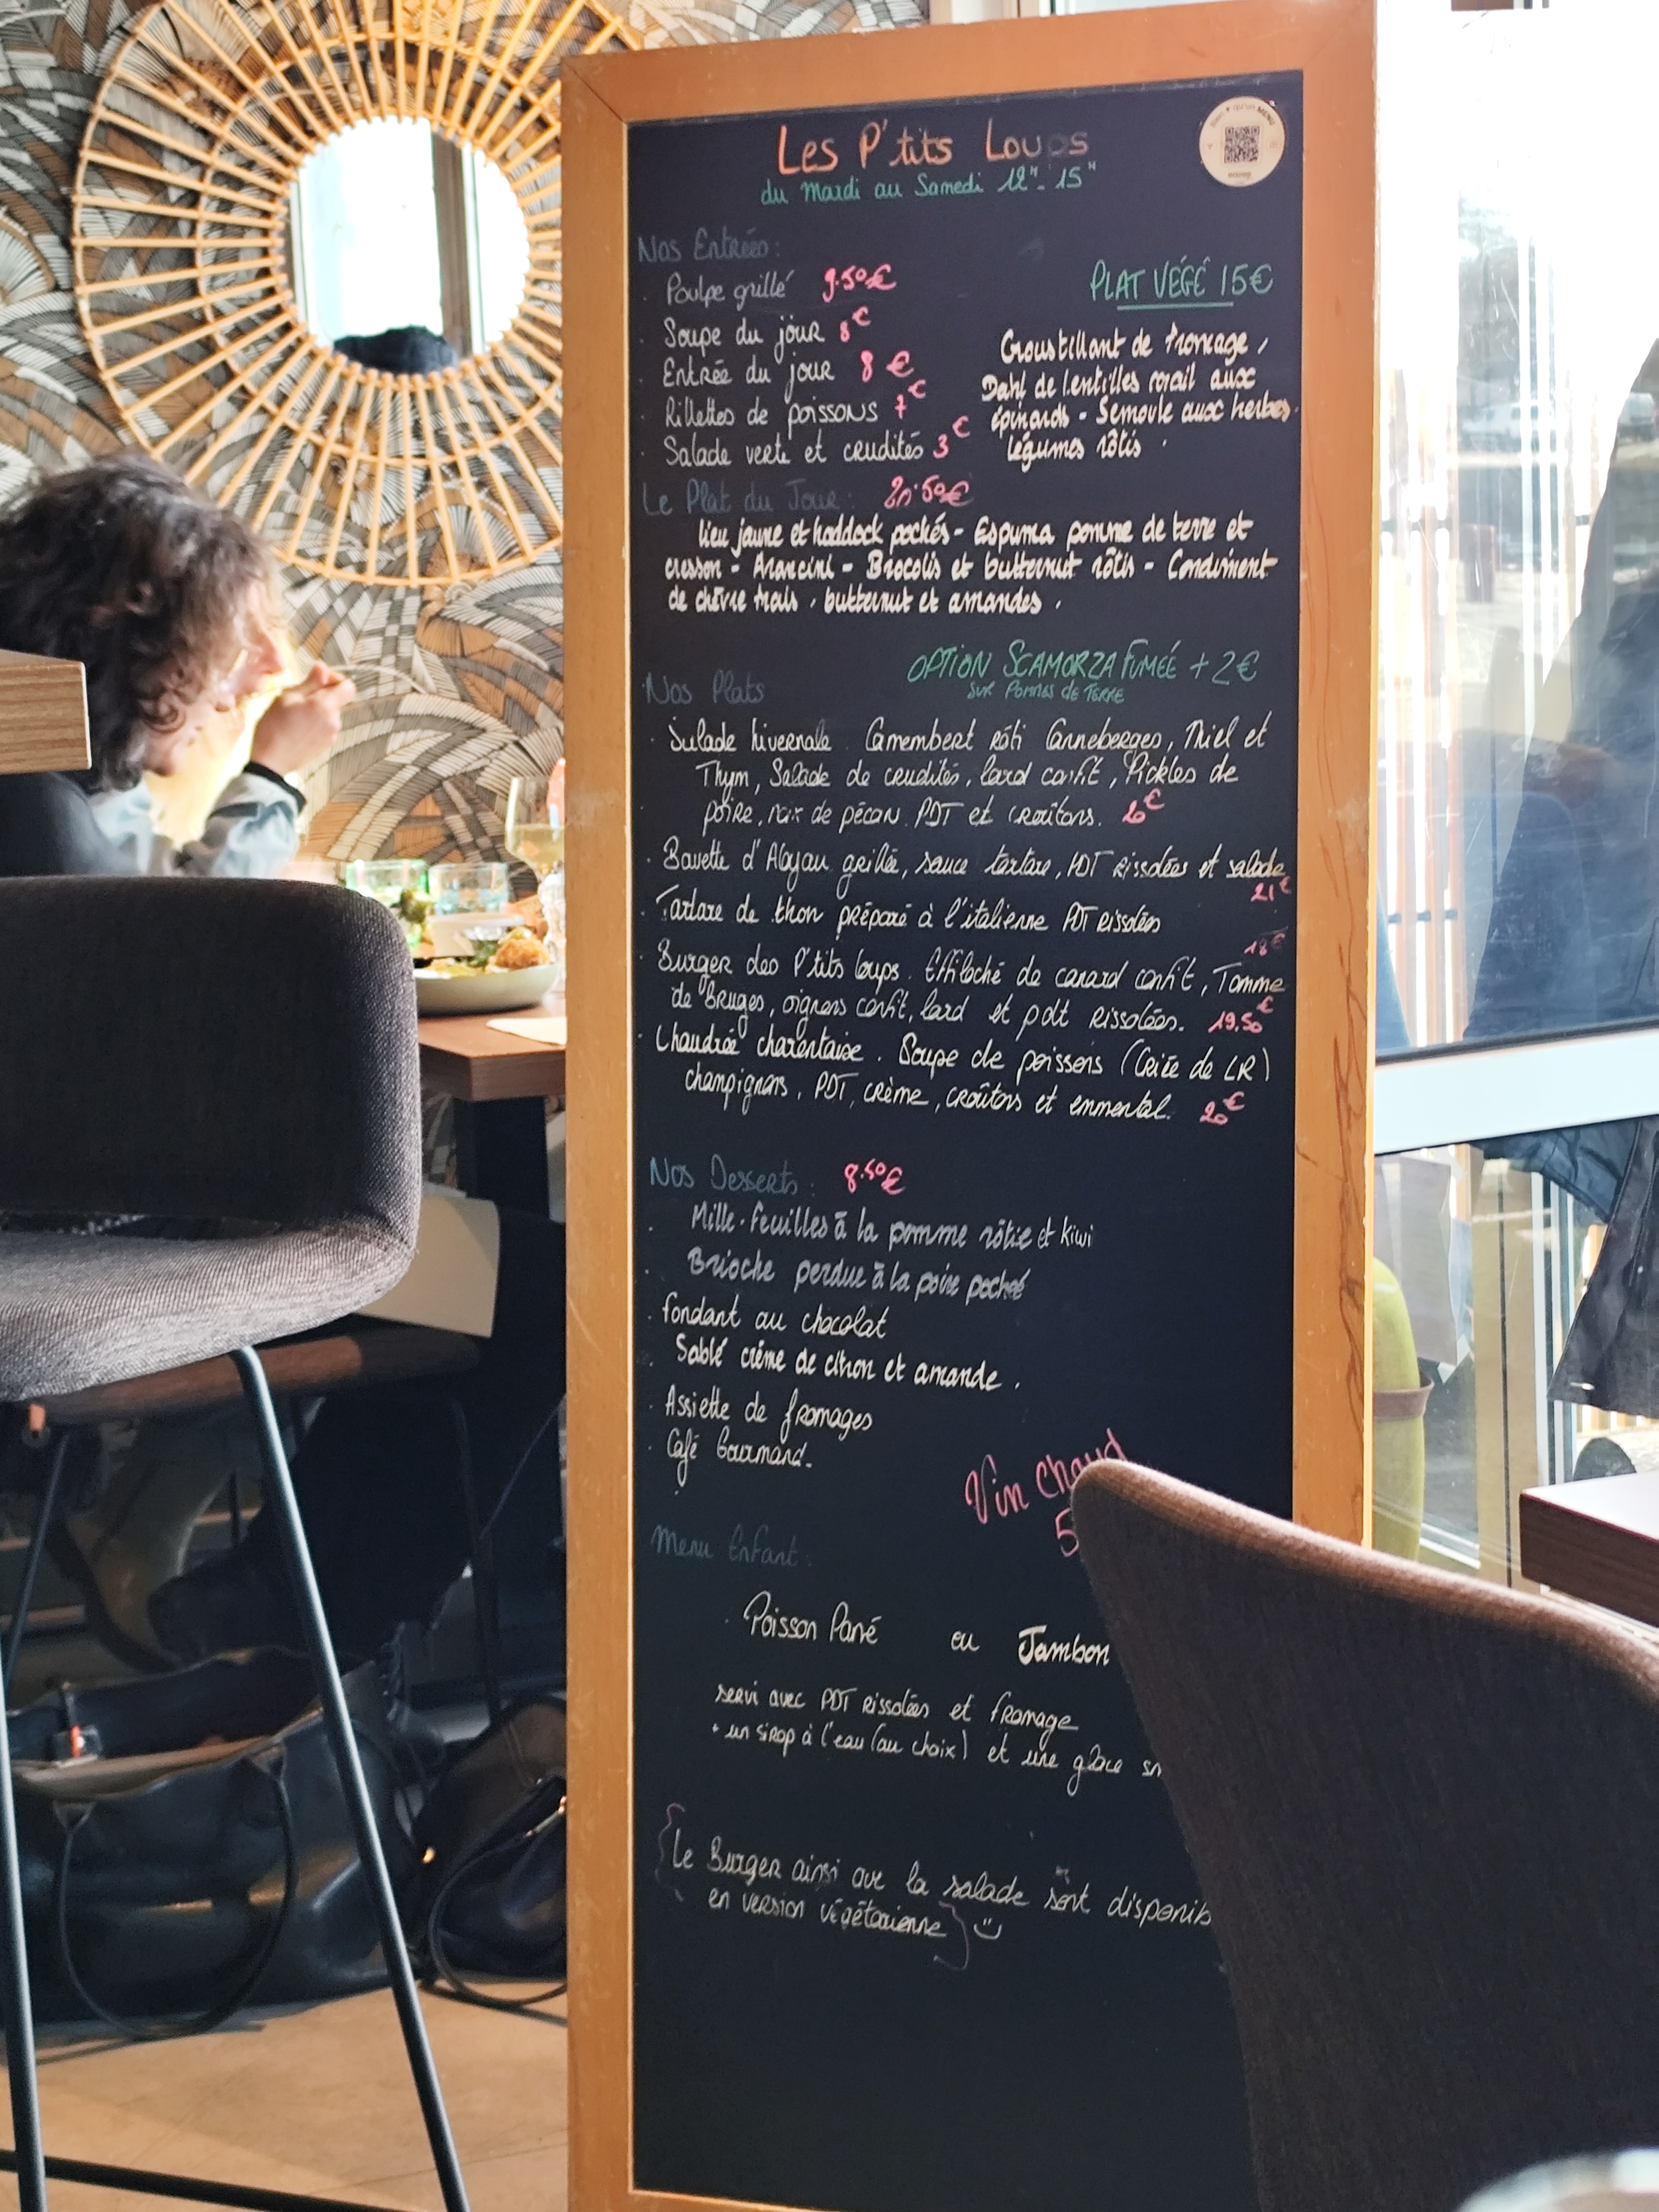 Les P'tits Loups
du Mardi au Samedi 12H - 15H
Nos Entrées :
· Poulpe grillé 9.50€
· Soupe du jour 8€
· Entrée du jour 8€
· Rillettes de poissons 7€
· Salade verte et crudités 3€
PLAT VÉGÉ 15€
Croustillant de fromage,
Dahl de lentilles corail aux
épinards - Semoule aux herbes.
légumes rôtis.
Le Plat du Jour : 20.50€
lieu jaune et haddock pochés - Espuma pomme de terre et
cresson - Arancini - Brocolis et butternut rôtis - Condiment
de chèvre frais, butternut et amandes.
OPTION SCAMORZA FUMÉE + 2€
SUR POMMES DE TERRE
Nos Plats
· Salade hivernale. Camembert rôti Canneberges, Miel et
Thym, Salade de crudités, lard confit, Pickles de
poire, noix de pécan. PDT et croûtons. 20€
· Bavette d'Aloyau grillée, sauce tartare, PDT Rissolées et salade
21€
· Tartare de thon préparé à l'italienne PDT rissolées
18€
· Burger des P'tits loups. Effiloché de canard confit, Tomme
de Bruges, oignons confit, lard et pdt rissolées. 19.50€
· Chaudrée charentaise. Soupe de poissons (Criée de LR)
champignons, PDT, crème, croûtons et emmental. 20€
Nos Desserts : 8.50€
· Mille-feuilles à la pomme rôtie et kiwi
· Brioche perdue à la poire poché
· fondant au chocolat
· Sablé crème de citron et amande.
· Assiette de fromages
· Café Gourmand.
Vin chaud
5
Menu Enfant :
· Poisson Pané ou Jambon
servi avec PDT Rissolées et fromage
+ un sirop à l'eau (au choix) et une glace
{Le Burger ainsi que la salade sont disponib
en version végétarienne}